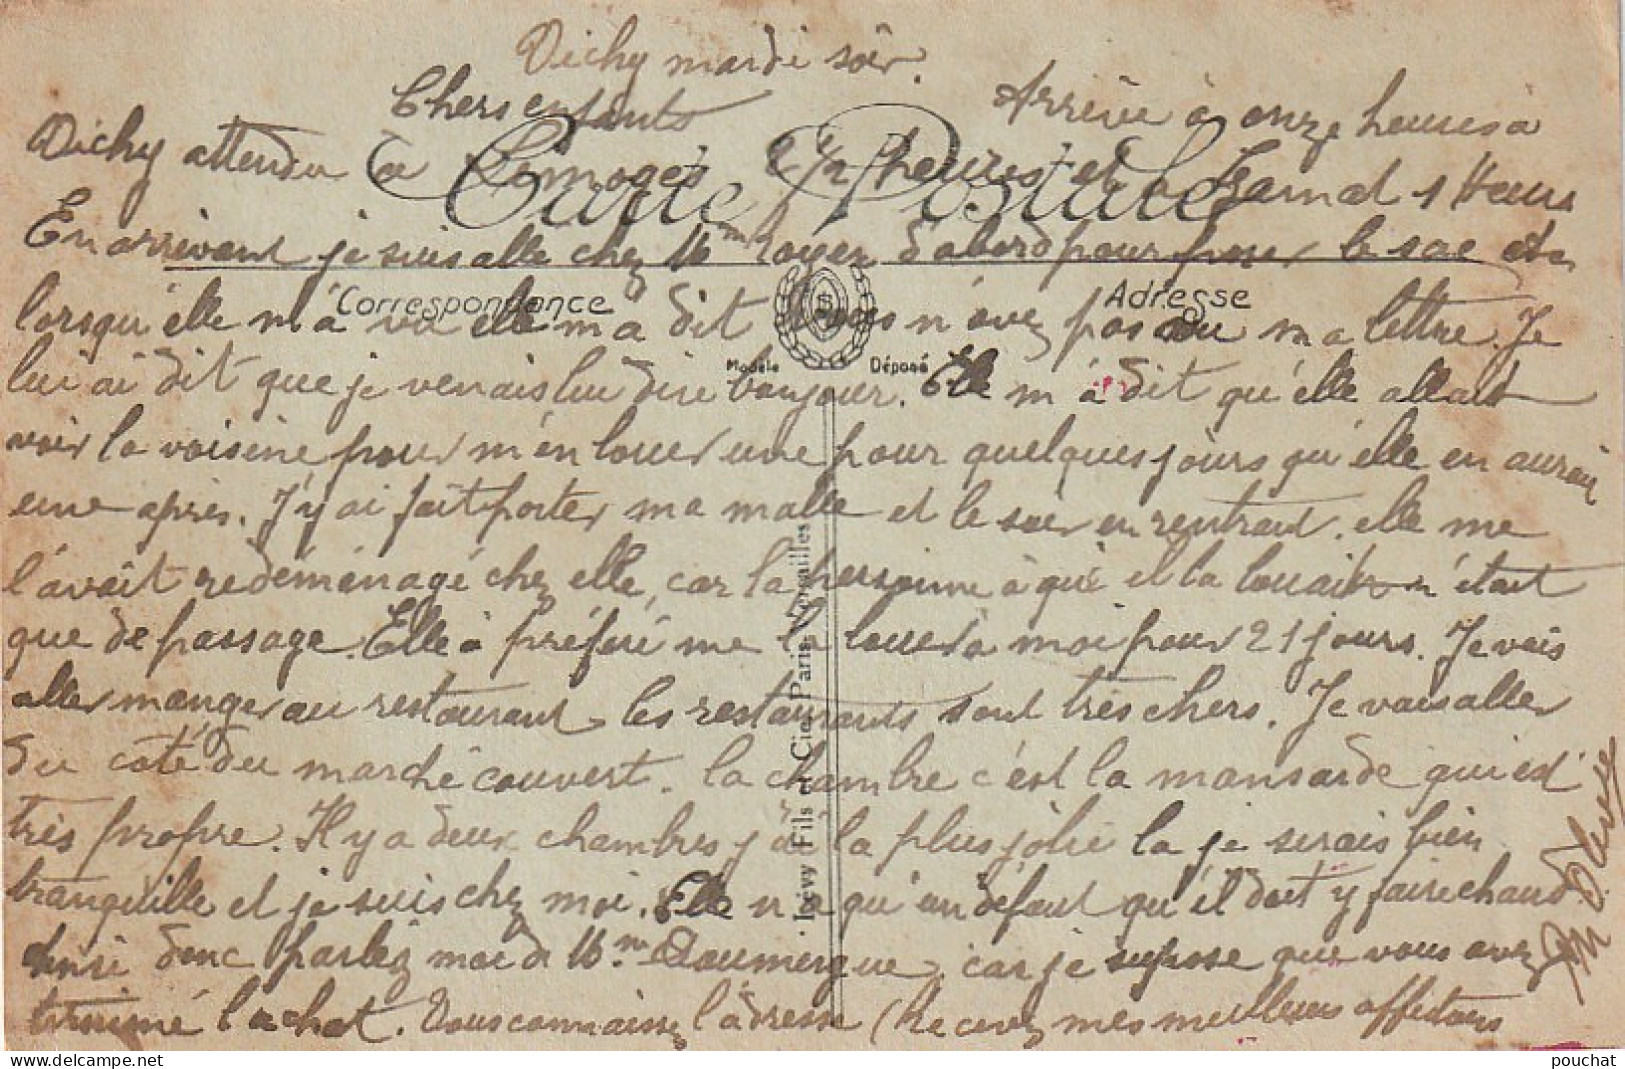 Vichy mardi soir.
Chers enfants
Arrivée à onze heures à
Vichy attendu à Limoges 2 1/2 heures et à 1 Heure
Carte Postale
En arrivant je suis allé chez Mme Royer d'abord pour le sac et
Correspondance
Adresse
lorsqu'elle m'a vu elle m'a dit vous n'avez pas eu ma lettre. Je
Modèle Déposé
lui ai dit que je venais lui dire bonjour. Elle m'a dit qu'elle allait
voir la voisine pour m'en louer une pour quelques jours qu'elle en aurait
une après. J'y ai fait porter ma malle et le soir en rentrant. elle me
l'avait redéménagé chez elle, car la personne à qui il la louait n'était
que de passage. Elle a préféré me la louer à moi pour 21 jours. Je vais
aller manger au restaurant les restaurants sont très chers. Je vais aller
du côté du marché couvert. la chambre c'est la mansarde qui est
très propre. Il y a deux chambres j'ai la plus jolie la je serais bien
tranquille et je suis chez moi. Elle n'a qu'un défaut qu'il doit y faire chaud.
donc parlez moi de Mme Doumergue car je suppose que vous avez
terminé l'achat. Vous connaissez l'adresse (Recevez mes meilleurs affections
Lévy Fils et Cie, Paris, Versailles